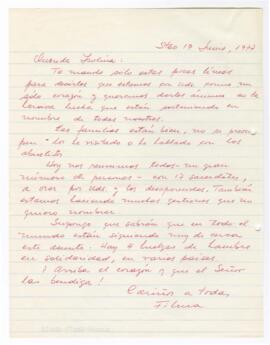 Stgo 19 Junio, 1977
Querida Paulina:
Te mando sólo estas pocas líneas
para decirles que estamos con Uds como un
solo corazón y queremos darles ánimos en la
heroica lucha que están sosteniendo en
nombre de todos nosotros.
Las familias están bien, no se preocu
pen - los he visitado o he hablado con los
abuelitos.
Hoy nos reunimos todos - un gran
número de personas - con 17 sacerdotes,
a orar por Uds. y los desaparecidos. También
estamos haciendo muchas gestiones que no
quiero nombrar.
Supongo que sabrán que en todo el
mundo están siguiendo muy de cerca
este asunto: Hay 4 huelgas de hambre
en solidaridad, en varios países.
¡Arriba el corazón y que el Señor
las bendiga!
Cariños a todas,